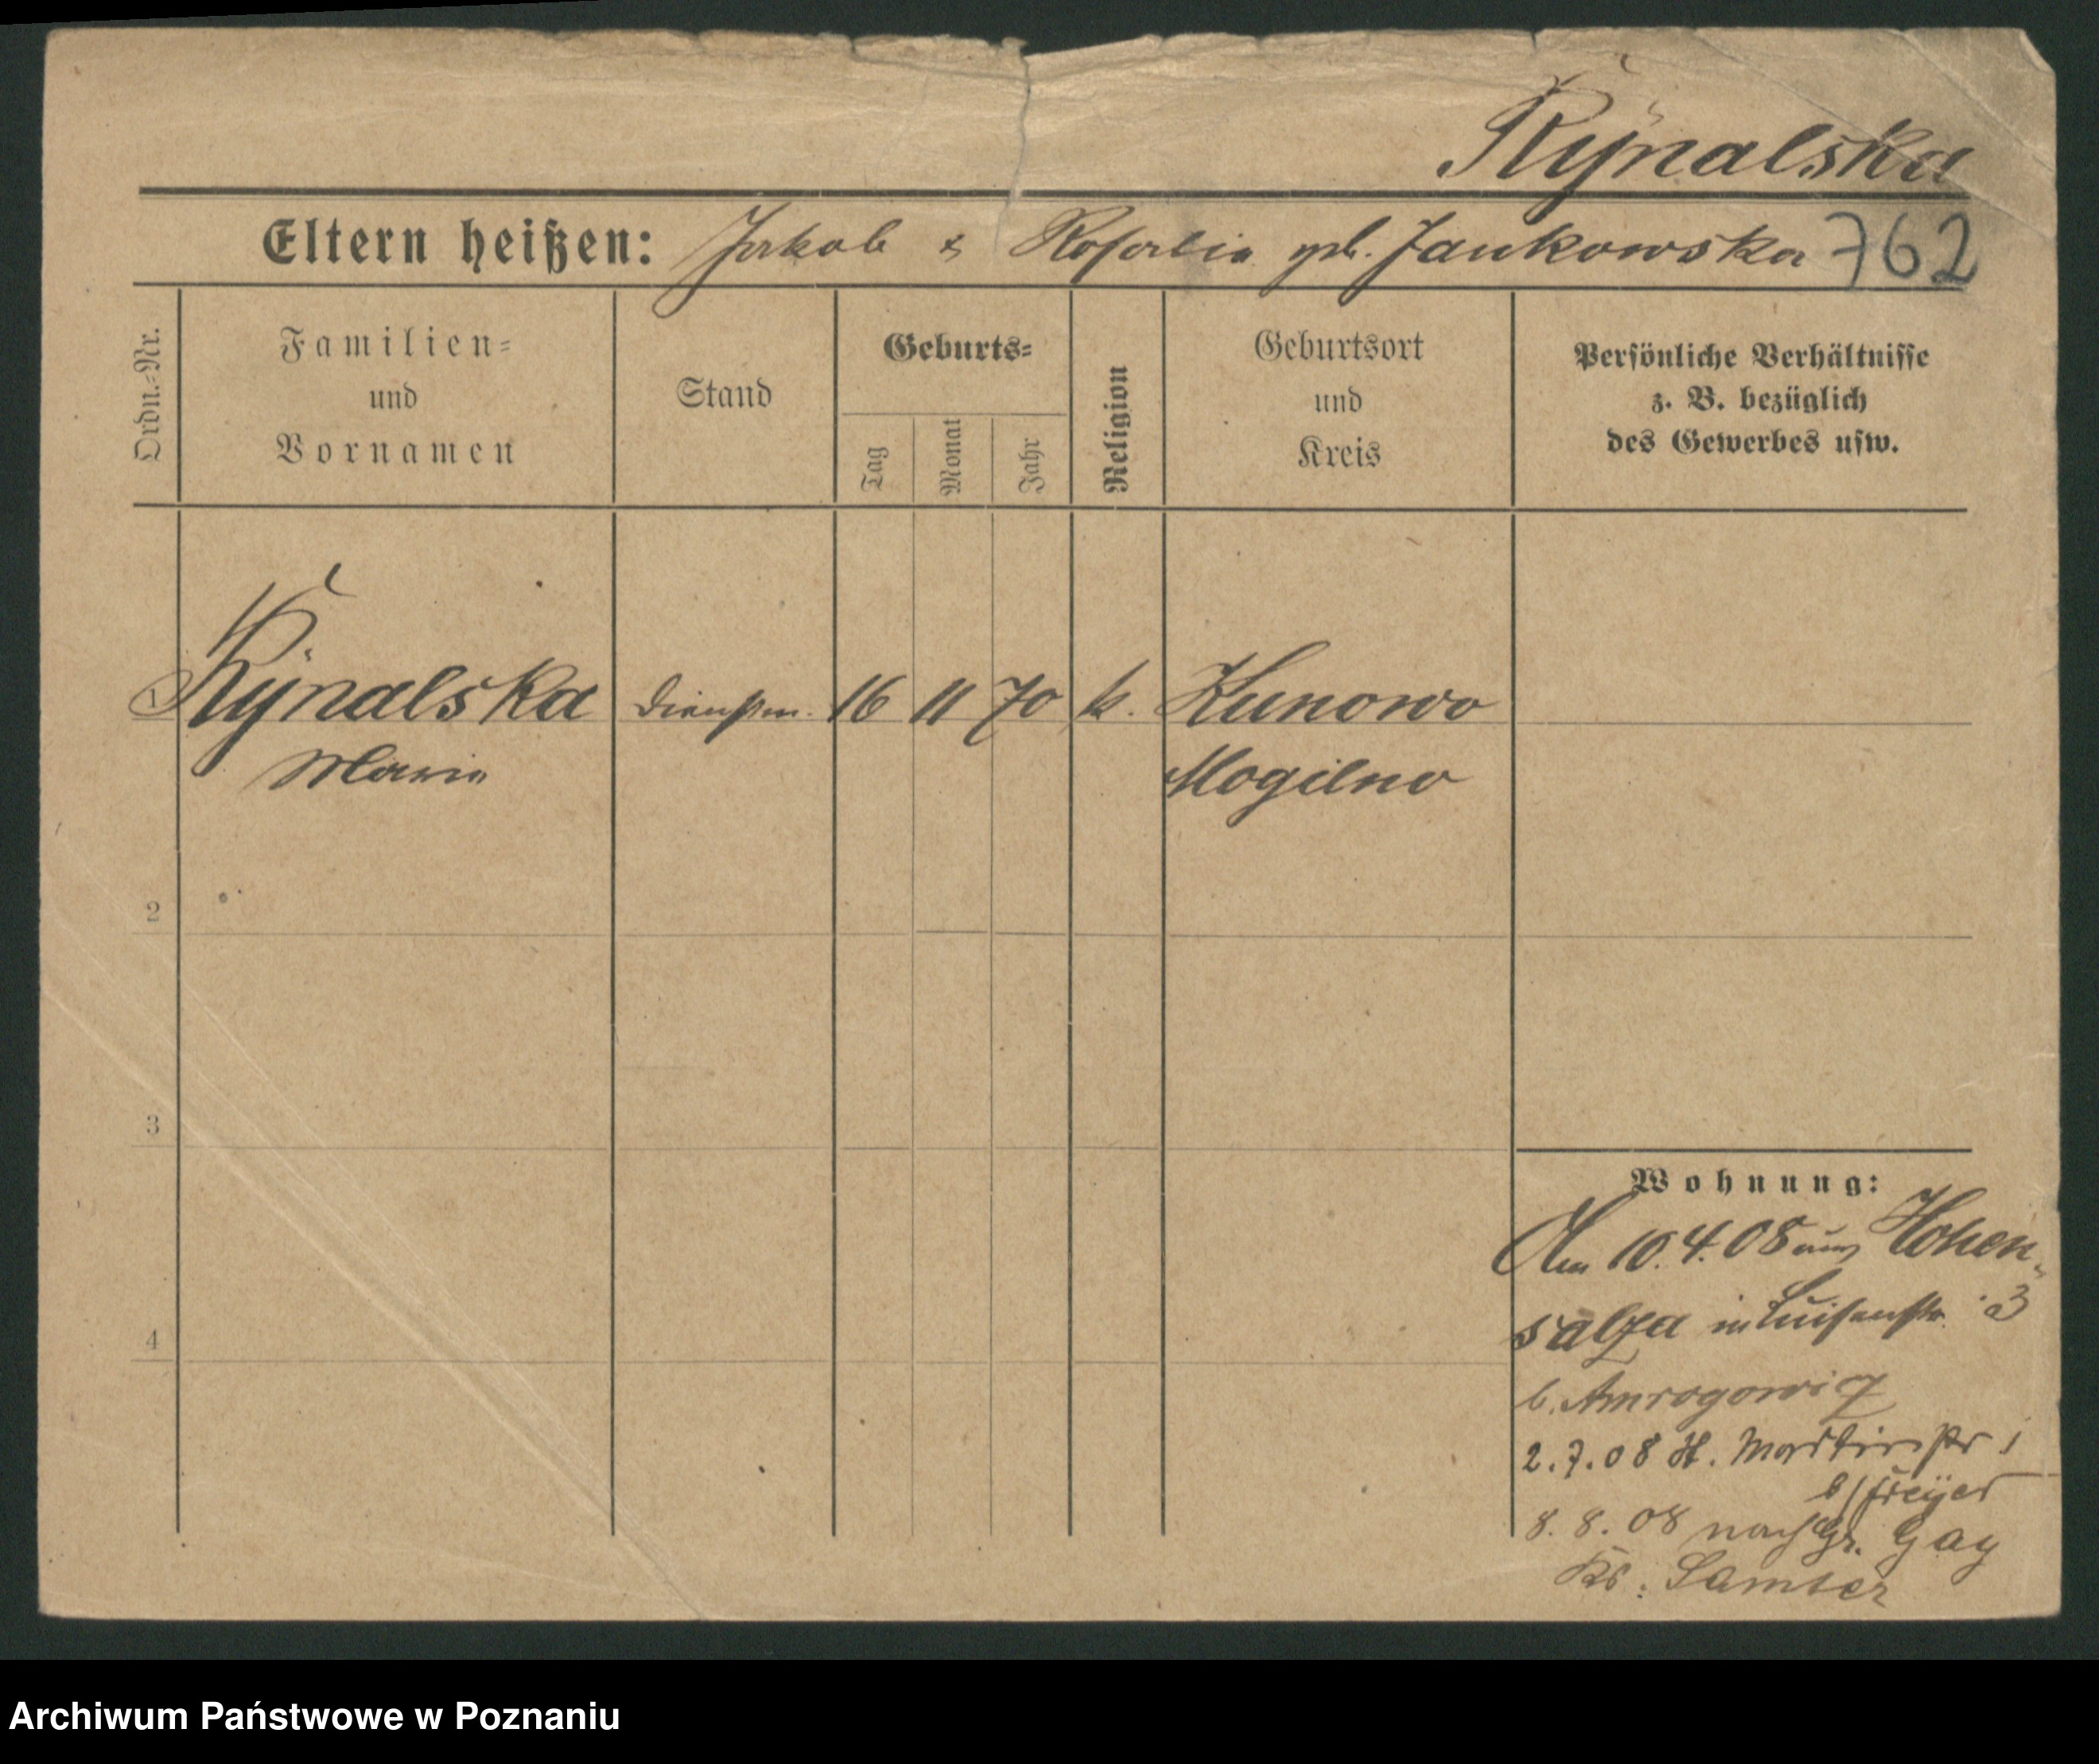 Rynalska
Eltern heißen: Jakob & Rosalia geb. Jankowska 762
Ordn.-Nr.
Familien-
und
Vornamen
Stand
Geburts-
Tag
Monat
Jahr
Religion
Geburtsort
und
Kreis
Persönliche Verhältnisse
z. B. bezüglich
des Gewerbes usw.
1 Rynalska Dienstm. 16 11 70 k. Kunowo
Maria Mogilno
2
3
4
Wohnung:
Am 10.4.08 aus Hohen-
salza in Luisenstr. 3
b. Amrogowicz
2.7.08 St. Martinstr 1
b/ Freyer
8. 8. 08 nach Gr. Gay
Kr. Samter
Archiwum Państwowe w Poznaniu